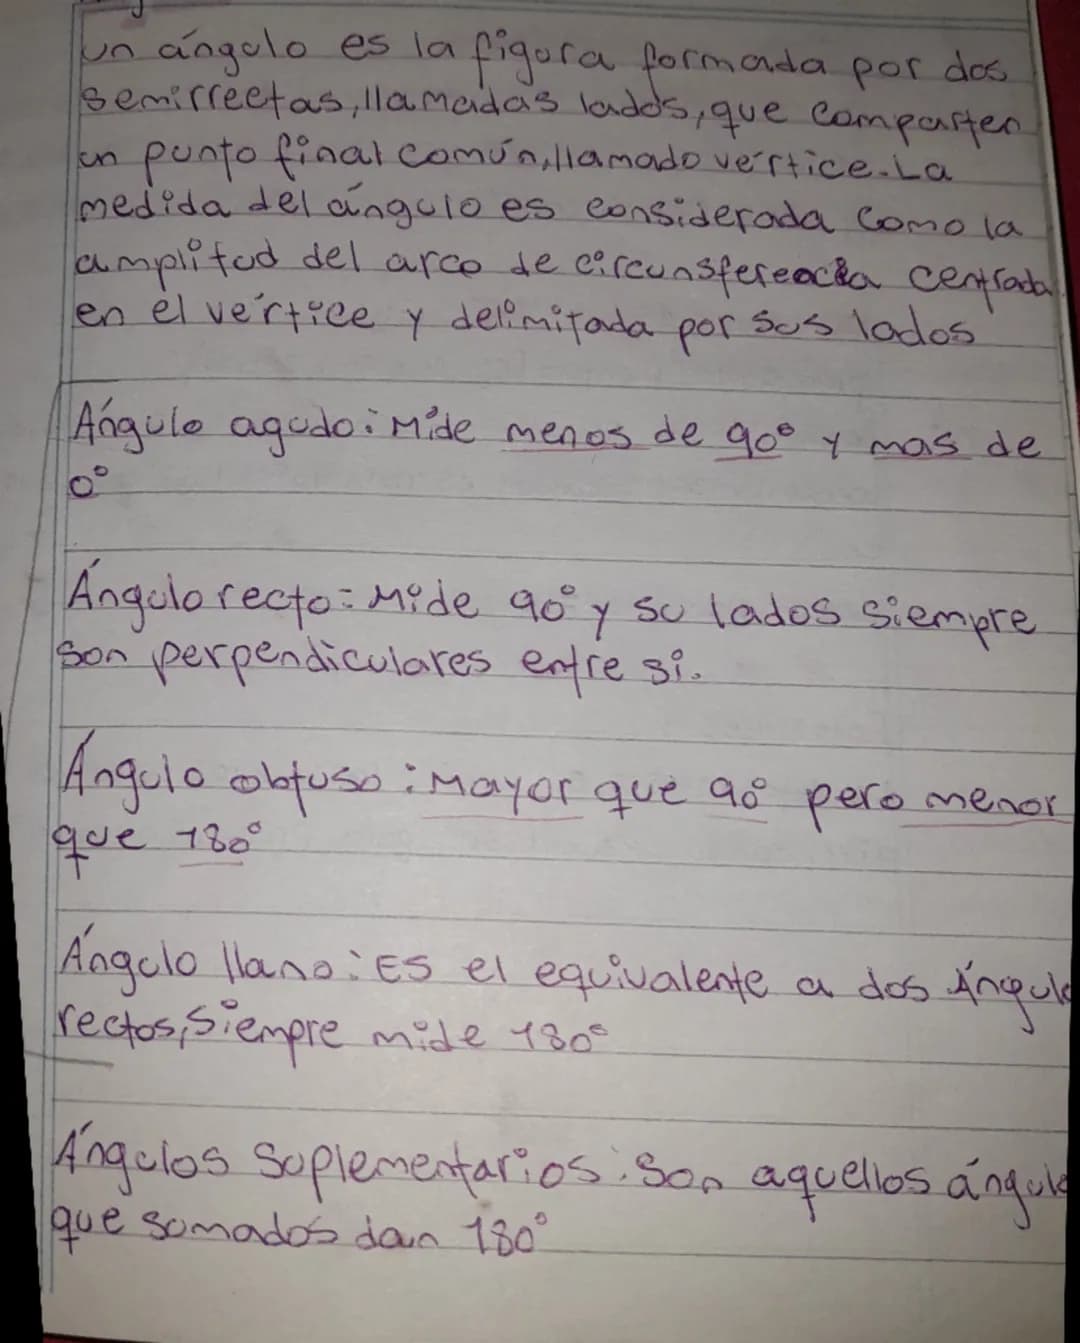 un ángulo es la figura formada por dos
semirrectas, llamadas lados, que comparten
un punto final común, llamado vértice. La
medida del ángulo es considerada como la
amplitud del arco de circunsferencia centrada
en el vértice y delimitada por sus lados
Ángulo agudo: Mide menos de 90° y mas de
0°
Ángulo recto: Mide 90° y su lados siempre
son perpendiculares entre si.
Ángulo obtuso: Mayor que 90° pero menor
que 180°
Ángulo llano: Es el equivalente a dos Ángulo
rectos, siempre mide 180°
Ángulos Suplementarios: Son aquellos ángulo
que somados dan 180°